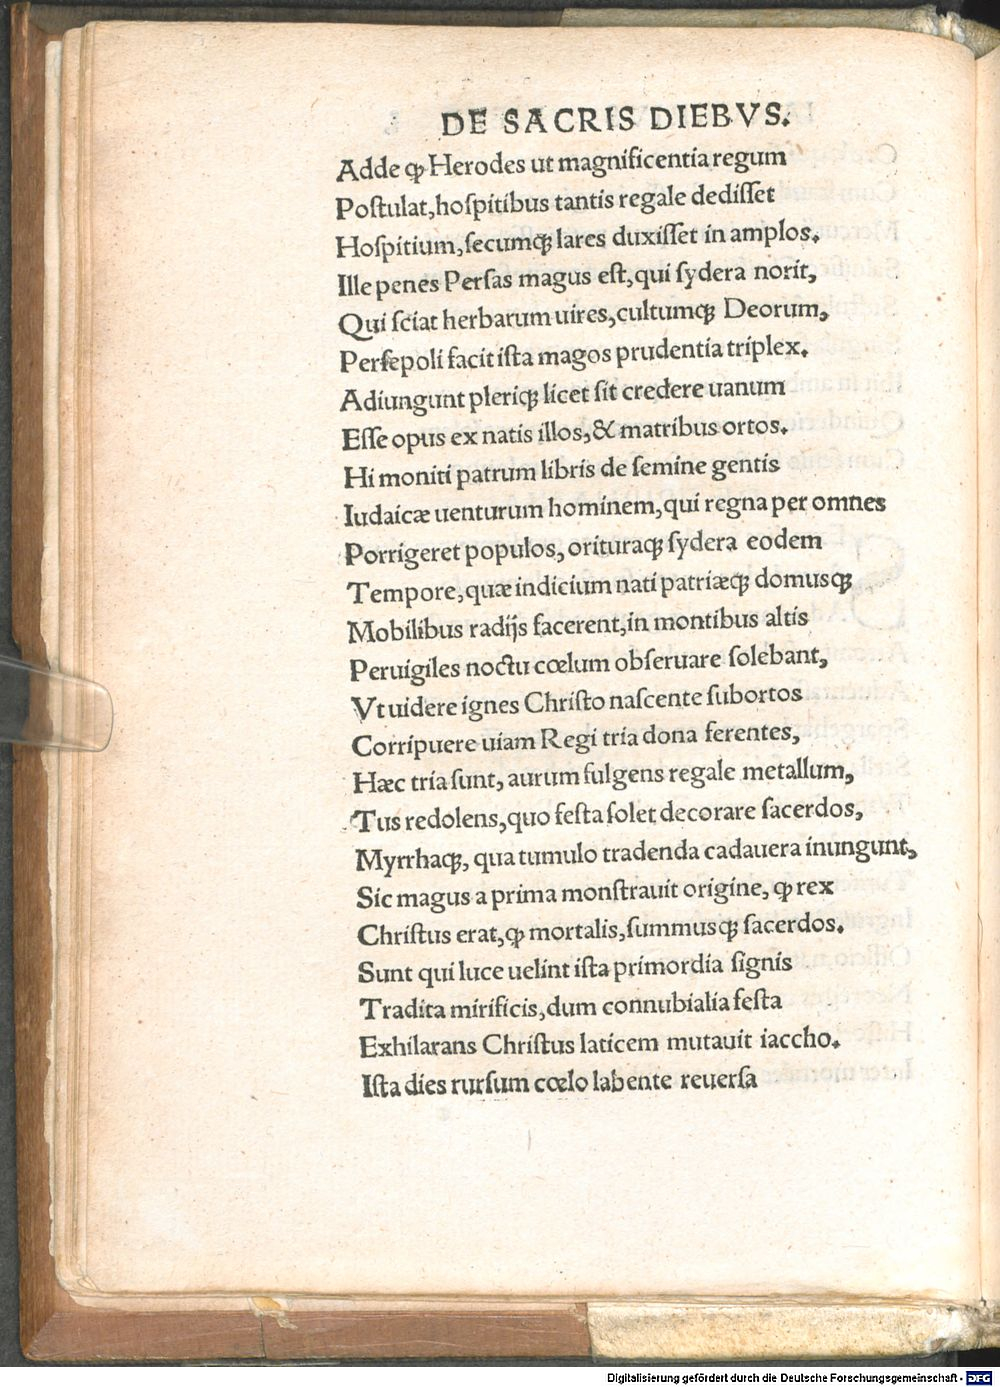 DE SACRIS DIEBVS.
Adde ꝙ Herodes ut magnificentia regum
Poſtulat, hoſpitibus tantis regale dediſſet
Hoſpitium, ſecumqꝫ lares duxiſſet in amplos.
Ille penes Perſas magus eſt, qui ſydera norit,
Qui ſciat herbarum uires, cultumqꝫ Deorum,
Perſepoli facit iſta magos prudentia triplex.
Adiungunt pleriqꝫ licet ſit credere uanum
Eſſe opus ex natis illos, & matribus ortos.
Hi moniti patrum libris de ſemine gentis
Iudaicæ uenturum hominem, qui regna per omnes
Porrigeret populos, orituraqꝫ ſydera eodem
Tempore, quæ indicium nati patriæqꝫ domusqꝫ
Mobilibus radijs facerent, in montibus altis
Peruigiles noctu cœlum obſeruare ſolebant,
Vt uidere ignes Chriſto naſcente ſubortos
Corripuere uiam Regi tria dona ferentes,
Hæc tria ſunt, aurum fulgens regale metallum,
Tus redolens, quo feſta ſolet decorare ſacerdos,
Myrrhaqꝫ, qua tumulo tradenda cadauera inungunt,
Sic magus a prima monſtrauit origine, ꝙ rex
Chriſtus erat, ꝙ mortalis, ſummusqꝫ ſacerdos.
Sunt qui luce uelint iſta primordia ſignis
Tradita mirificis, dum connubialia feſta
Exhilarans Chriſtus laticem mutauit iaccho.
Iſta dies rurſum cœlo labente reuerſa
Digitalisierung gefördert durch die Deutsche Forschungsgemeinschaft - DFG